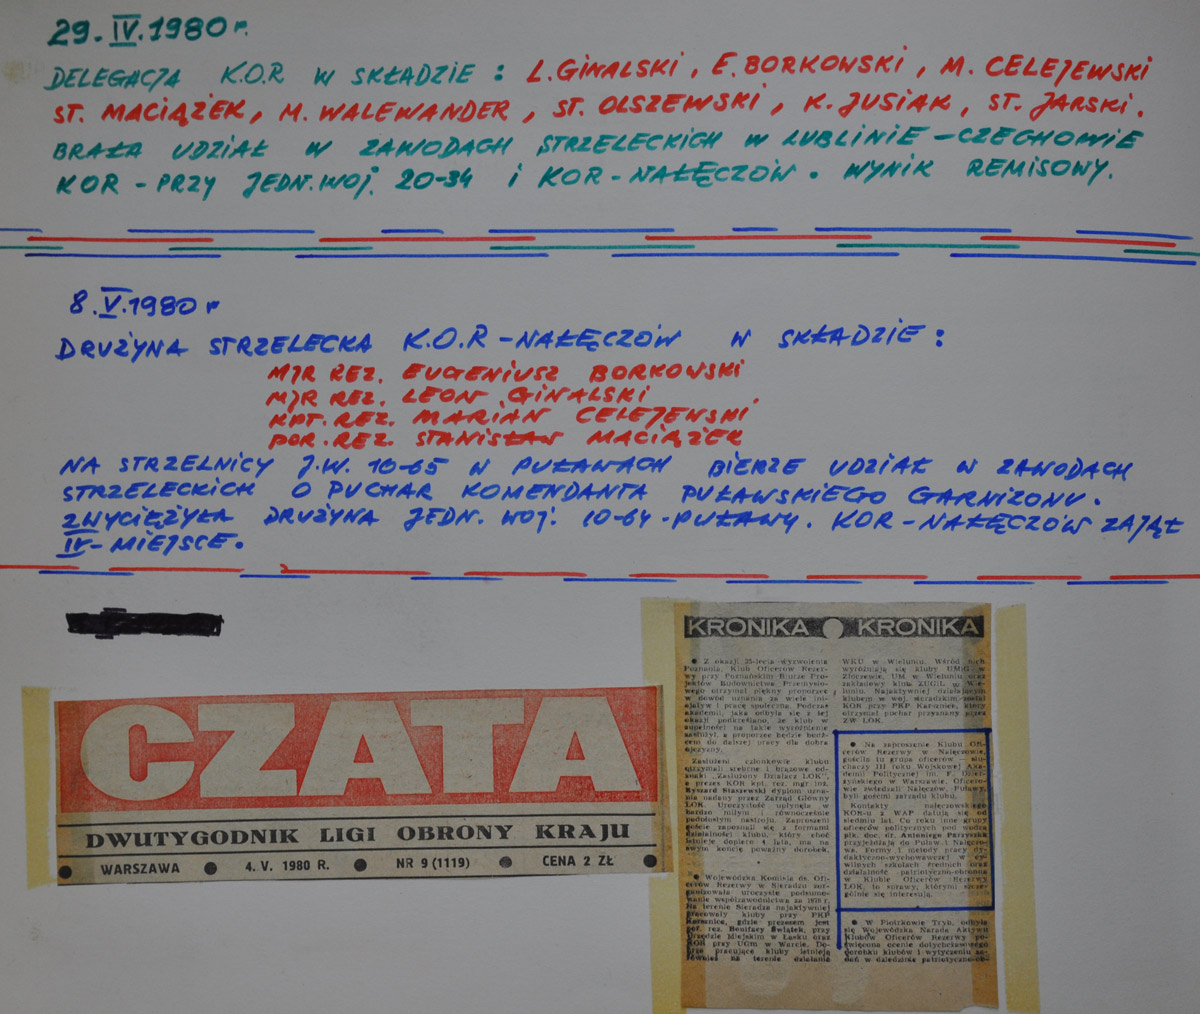 29.IV.1980 r.
DELEGACJA K.O.R W SKŁADZIE : L.GINALSKI, E.BORKOWSKI, M. CELEJEWSKI
ST. MACIĄŻEK, M. WALEWANDER, ST. OLSZEWSKI, K. JUSIAK, ST. JARSKI.
BRAŁA UDZIAŁ W ZAWODACH STRZELECKICH W LUBLINIE - CZECHOWIE
KOR - PRZY JEDN.WOJ. 20-34 i KOR - NAŁĘCZÓW. WYNIK REMISOWY.
8.V.1980 r
DRUŻYNA STRZELECKA K.O.R - NAŁĘCZÓW W SKŁADZIE :
MJR REZ. EUGENIUSZ BORKOWSKI
MJR REZ. LEON GINALSKI
KPT. REZ. MARIAN CELEJEWSKI
POR. REZ. STANISŁAW MACIĄŻEK
NA STRZELNICY J.W. 10-65 W PUŁAWACH BIERZE UDZIAŁ W ZAWODACH
STRZELECKICH O PUCHAR KOMENDANTA PUŁAWSKIEGO GARNIZONU.
ZWYCIĘŻYŁA DRUŻYNA JEDN. WOJ. 10-64 - PUŁAWY. KOR - NAŁĘCZÓW ZAJĄŁ
IV - MIEJSCE.
CZATA
DWUTYGODNIK LIGI OBRONY KRAJU
WARSZAWA ● 4. V. 1980 R. ● NR 9 (1119) ● CENA 2 ZŁ
KRONIKA ● KRONIKA
● Z okazji 35-lecia wyzwolenia
Poznania, Klub Oficerów Rezer-
wy przy Poznańskim Biurze Pro-
jektów Budownictwa Przemysło-
wego otrzymał piękny proporzec
w dowód uznania za wiele ini-
cjatyw i pracę społeczną. Podczas
akademii, jaka odbyła się z tej
okazji podkreślano, że klub w
zupełności na takie wyróżnienie
zasłużył, a proporzec będzie bodź-
cem do dalszej pracy dla dobra
ojczyzny.
Zasłużeni członkowie klubu
otrzymali srebrne i brązowe od-
znaki „Zasłużony Działacz LOK",
a prezes KOR kpt. rez. mgr inż.
Ryszard Staszewski dyplom uzna-
nia nadany przez Zarząd Główny
LOK. Uroczystość upłynęła w
bardzo miłym i równocześnie
podniosłym nastroju. Zaproszeni
goście zapoznali się z formami
działalności klubu, który choć
istnieje dopiero 4 lata, ma na
swym koncie poważny dorobek.
● Wojewódzka Komisja ds. Ofi-
cerów Rezerwy w Sieradzu zor-
ganizowała uroczyste podsumo-
wanie współzawodnictwa za 1979 r.
Na terenie Sieradza najaktywniej
pracowały kluby przy PKP
Karsznice, gdzie prezesem jest
por. rez. Bonifacy Świątek, przy
Urzędzie Miejskim w Łasku oraz
KOR przy UGm w Warcie. Do-
brze pracujące kluby istnieją
również na terenie działania
WKU w Wieluniu. Wśród nich
wyróżniają się kluby UMiG w
Złoczewie, UM w Wieluniu oraz
zakładowy klub ZUGIL w Wie-
luniu. Najaktywniej działającym
klubem w woj. sieradzkim został
KOR przy PKP Karsznice, który
otrzymał puchar przyznany przez
ZW LOK.
● Na zaproszenie Klubu Ofi-
cerów Rezerwy w Nałęczowie,
gościła tu grupa oficerów — słu-
chaczy III roku Wojskowej Aka-
demii Politycznej im. F. Dzier-
żyńskiego w Warszawie. Oficero-
wie zwiedzali Nałęczów, Puławy,
byli gośćmi zarządu klubu.
Kontakty nałęczowskiego
KOR-u z WAP datują się od
siedmiu lat. Co roku inne grupy
oficerów politycznych pod wodzą
płk. doc. dr. Antoniego Parzyszka
przyjeżdżają do Puław i Nałęczo-
wa. Formy i metody pracy dy-
daktyczno-wychowawczej w cy-
wilnych szkołach średnich oraz
działalność patriotyczno-obronna
w Klubie Oficerów Rezerwy
LOK, to sprawy, którymi szcze-
gólnie się interesują.
● W Piotrkowie Tryb. odbyła
się Wojewódzka Narada Aktywu
Klubów Oficerów Rezerwy po-
święcona ocenie dotychczasowego
dorobku klubów i wytyczeniu za-
dań w dziedzinie patriotyczno-ob-